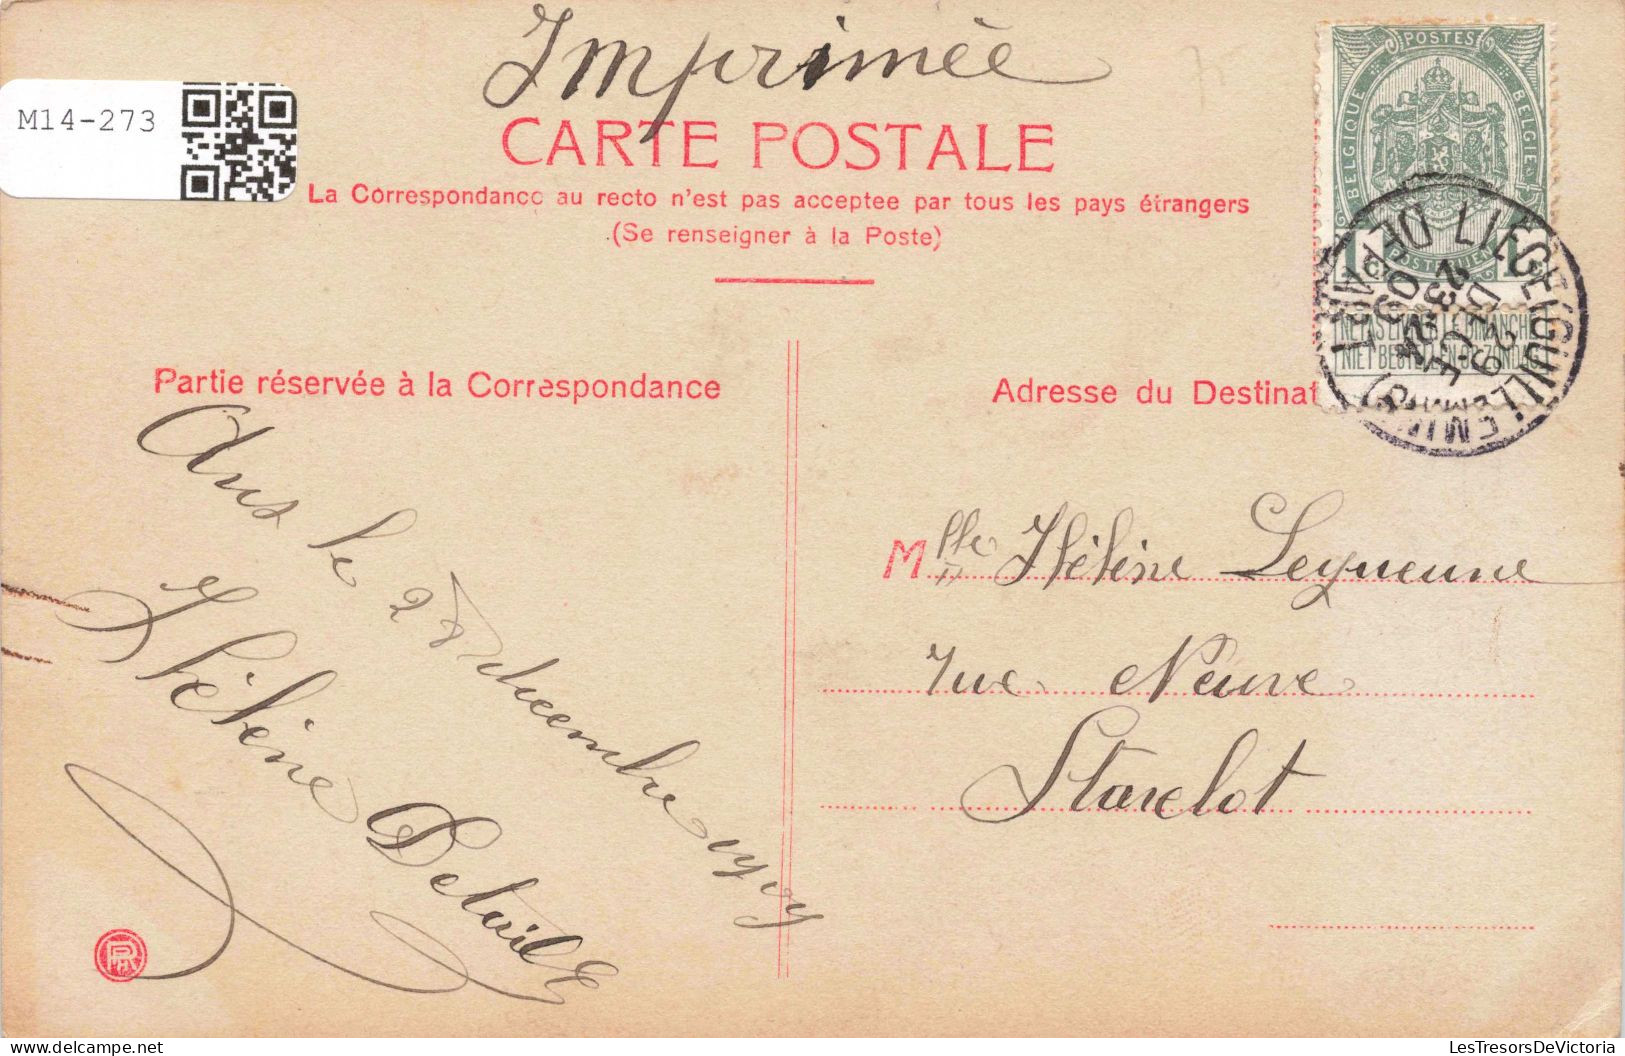 Imprimée
M14-273
CARTE POSTALE
La Correspondance au recto n'est pas acceptee par tous les pays étrangers
(Se renseigner à la Poste)
POSTES
BELGIQUE BELGIE
LIEGE (GUILLEMINS)
DEPART
23-24
09
NE PAS LIVRER LE DIMANCHE
NIET BESTELLEN OP ZONDAG
Partie réservée à la Correspondance
Adresse du Destinat
Ans le 28 décembre 1909
Hélène Detaille
Mlle Hélène Leqneune
rue Neuve
Stavelot
LesTresorsDeVictoria